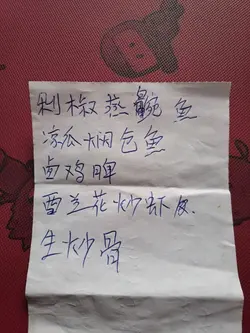 剁椒蒸鲩鱼
凉瓜焖包鱼
卤鸡脾
西兰花炒虾皮.
生炒骨